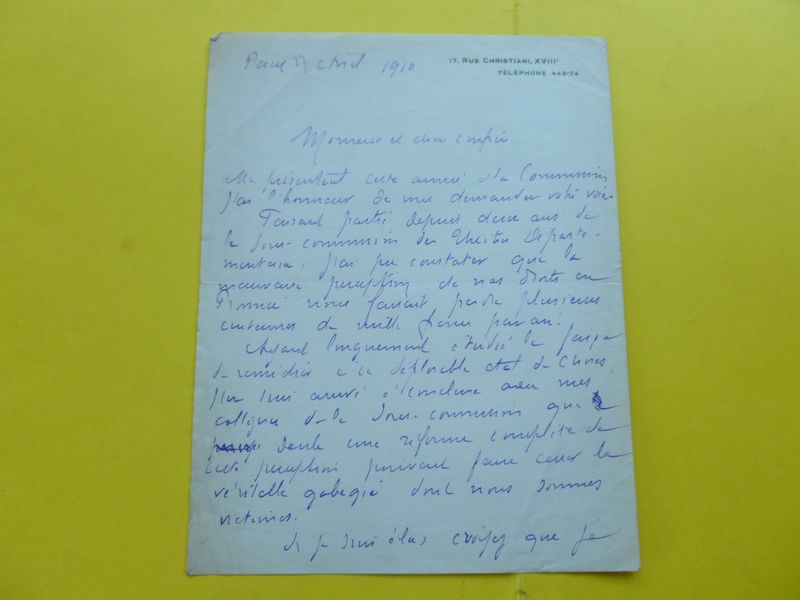 Paris 27 Avril 1910
17, RUE CHRISTIANI, XVIIIe
TÉLÉPHONE 448-74
Monsieur et cher confrère
Me présentant cette année à la Commission
j'ai l'honneur de vous demander votre voix.
Faisant partie depuis deux ans de
la Sous-commission des Théâtres Départe-
mentaux, j'ai pu constater que la
mauvaise perception de nos droits en
Province nous faisait perdre plusieurs
centaines de mille francs par an!
Ayant longuement étudié la façon
de remédier à ce déplorable état de choses,
j'en suis arrivé à conclure avec mes
collègues de la Sous-commission que
seule une réforme complète de
cette perception pouvait faire cesser la
véritable gabegie dont nous sommes
victimes.
Si je suis élu croyez que je